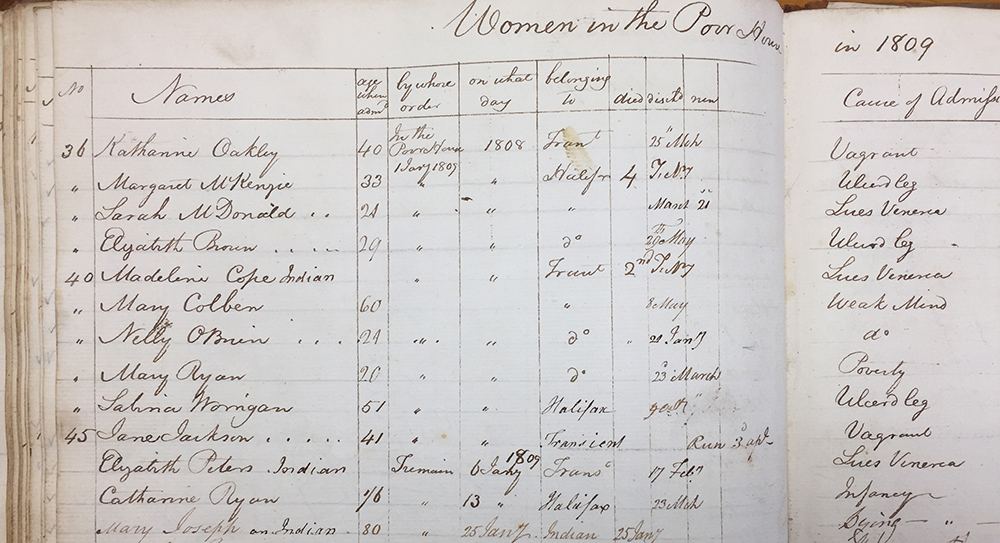 Women in the Poor House in 1809
No Names age when admd by whose order on what day belonging to died discd run Cause of Admiss
36 Katharine Oakley 40 In the Poor House 1 Jany 1809 1808 Trant 25th Mch Vagrant
" Margaret McKenzie 33 " " Halifx 4 Feb'y Ulcerd leg
" Sarah McDonald . . 21 " " " March 21 Lues Venerea
" Elizabeth Brown . . . . . 29 " " do 29th May Ulcerd leg
40 Madeline Cope Indian " " Trant 2nd Feb'y Lues Venerea
" Mary Colben 60 " 8 May Weak Mind
" Nelly OBrien . . . 24 " " do " 20 Jany do
" Mary Ryan 20 " " do 23d March Poverty
" Sabina Worrigan 51 " " Halifax Ulcerd leg
45 Jane Jackson . . . . . 41 " " Transient Run 3d apl Vagrant
Elizabeth Peters . Indian Tremain 6 Jany 1809 Trans 17 Feby Lues Venerea
Catharine Ryan 1/6 " 13 " Halifax 23 Mch Infancy
Mary Joseph an Indian 80 " 25 Jany Indian 25 Jany Dying — " —